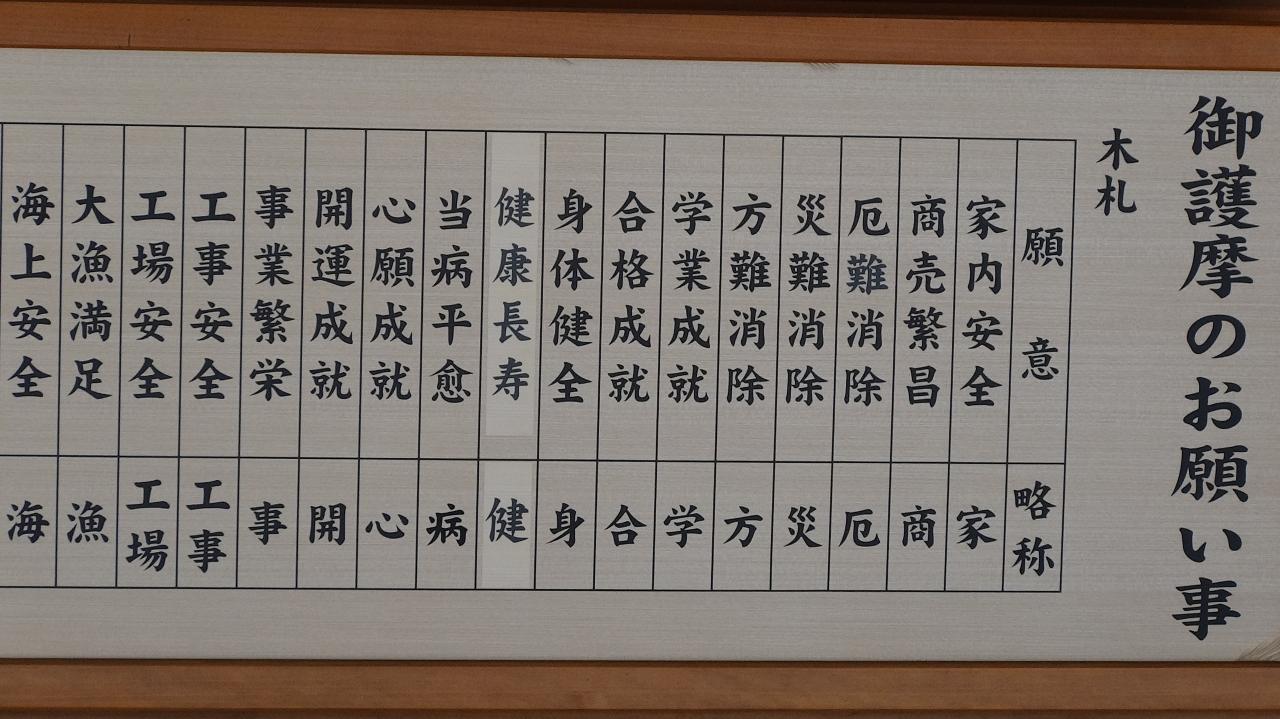 御護摩のお願い事
木札
願意
略称
家内安全
家
商売繁昌
商
厄難消除
厄
災難消除
災
方難消除
方
学業成就
学
合格成就
合
身体健全
身
健康長寿
健
当病平愈
病
心願成就
心
開運成就
開
事業繁栄
事
工事安全
工事
工場安全
工場
大漁満足
漁
海上安全
海